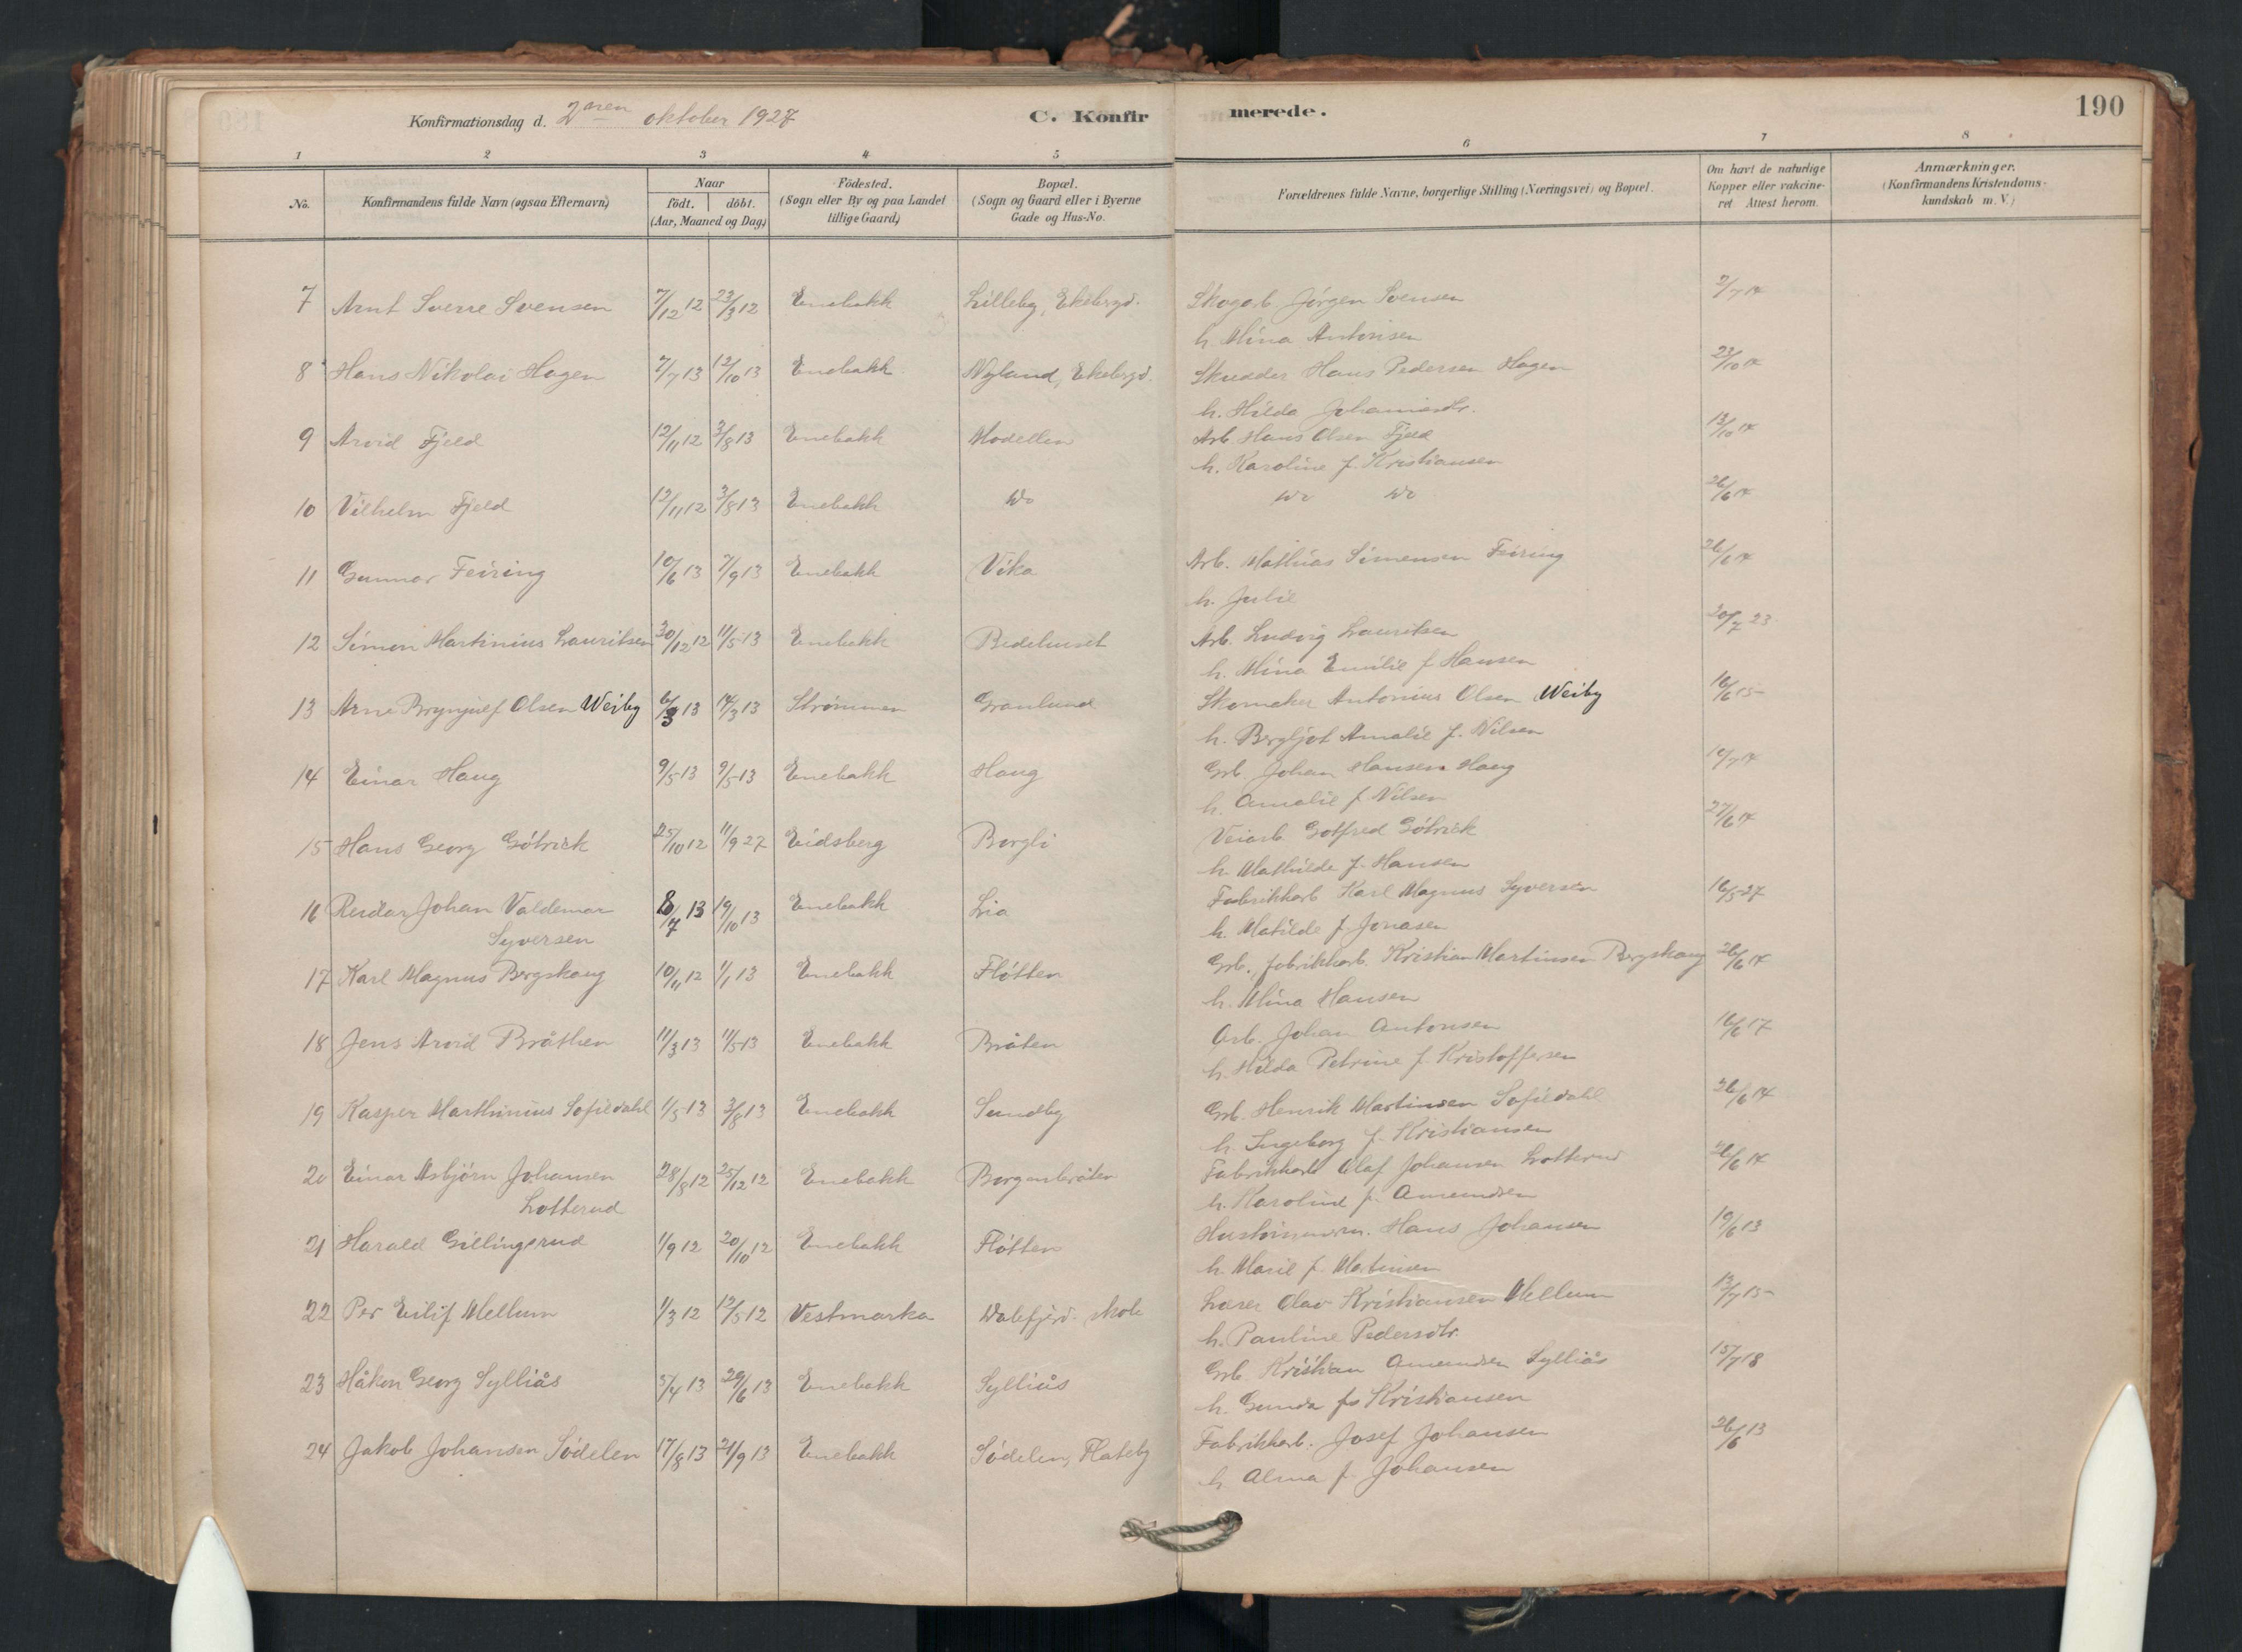 Konfirmationsdag d. 2nen oktober 1927 C. Konfirmerede. 190
1 2 3 4 5 6 7 8
No. Konfirmandens fulde Navn (ogsaa Efternavn) Naar født. døbt. (Aar, Maaned og Dag) Födested. (Sogn eller By og paa Landet tillige Gaard) Bopæl. (Sogn og Gaard eller i Byerne Gade og Hus-No. Forældrenes fulde Navne, borgerlige Stilling (Næringsvei) og Bopæl. Om havt de naturlige Kopper eller vakcineret. Attest herom. Anmærkninger. (Konfirmandens Kristendomskundskab m. V.)
7 Arnt Sverre Svensen 7/12 12 23/3 12 Enebakk Lilleby, Ekebergd. Skogarb. Jørgen Svensen 2/7 14
h. Mina Antonsen
8 Hans Nikolai Hagen 7/7 13 12/10 13 Enebakk Nyland, Ekebergd. Skredder Hans Pedersen Hagen 23/10 14
h. Hilda Johansdtr.
9 Arvid Fjeld 12/11 12 3/8 13 Enebakk Modellen Arb. Hans Olsen Fjeld 13/10 14
h. Karoline f. Kristiansen
10 Vilhelm Fjeld 12/11 12 3/8 13 Enebakk Do Do Do 26/6 14
11 Gunnar Feiring 10/6 13 7/9 13 Enebakk Vika Arb. Mathias Simensen Feiring 26/6 14
h. Julie
12 Simon Martinius Lauritsen 30/12 12 11/5 13 Enebakk Bedehuset Arb. Ludvig Lauritsen 20/7 23
h. Mina Emilie f. Hansen
13 Arne Brynjulf Olsen Weiby 6/3 13 14/3 13 Strømmen Granlund Skomaker Antonius Olsen Weiby 16/6 15
h. Bergljot Amalie f. Nilsen
14 Einar Haug 9/5 13 9/5 13 Enebakk Haug Grb. Johan Hansen Haug 14/7 14
h. Amalie f. Nilsen
15 Hans Georg Götrick 25/10 12 11/9 27 Eidsberg Borgli Veiarb. Gotfred Götrick 27/6 14
h. Mathilde f. Hansen
16 Reidar Johan Valdemar 8/7 13 19/10 13 Enebakk Lia Fabrikkarb Karl Magnus Syversen 16/5 27
Syversen h. Matilde f. Jonasen
17 Karl Magnus Bergskaug 10/11 12 1/1 13 Enebakk Fløtten Grb. fabrikkarb. Kristian Martinsen Bergskaug 26/6 14
h. Mina Hansen
18 Jens Arvid Bråthen 11/3 13 11/5 13 Enebakk Bråten Arb. Johan Antonsen 16/6 17
h. Hilda Petrine f. Kristoffersen
19 Kasper Marthinius Sofiedahl 1/5 13 3/8 13 Enebakk Sundby Grb. Henrik Martinsen Sofiedahl 26/6 14
h. Ingeborg f. Kristiansen
20 Einar Asbjørn Johansen 28/8 12 25/12 12 Enebakk Borgenbråten Fabrikkarb Olaf Johansen Lotterud 26/6 14
Lotterud h. Karoline f. Amundsen
21 Harald Gillingsrud 1/9 12 20/10 12 Enebakk Fløtten Hustømmerm. Hans Johansen 19/6 13
h. Marie f. Martinsen
22 Per Eilif Mellum 1/3 12 12/5 12 Vestmarka Dalefjerd. skole Lærer Olav Kristiansen Mellum 13/7 15
h. Pauline Pedersdtr.
23 Håkon Georg Sylliås 5/4 13 29/6 13 Enebakk Sylliås Grb. Kristian Amundsen Sylliås 15/7 18
h. Gunda f. Kristiansen
24 Jakob Johansen Sødelen 17/8 13 21/9 13 Enebakk Sødelen, Flateby Fabrikkarb. Josef Johansen 26/6 13
h. Alma f. Johansen